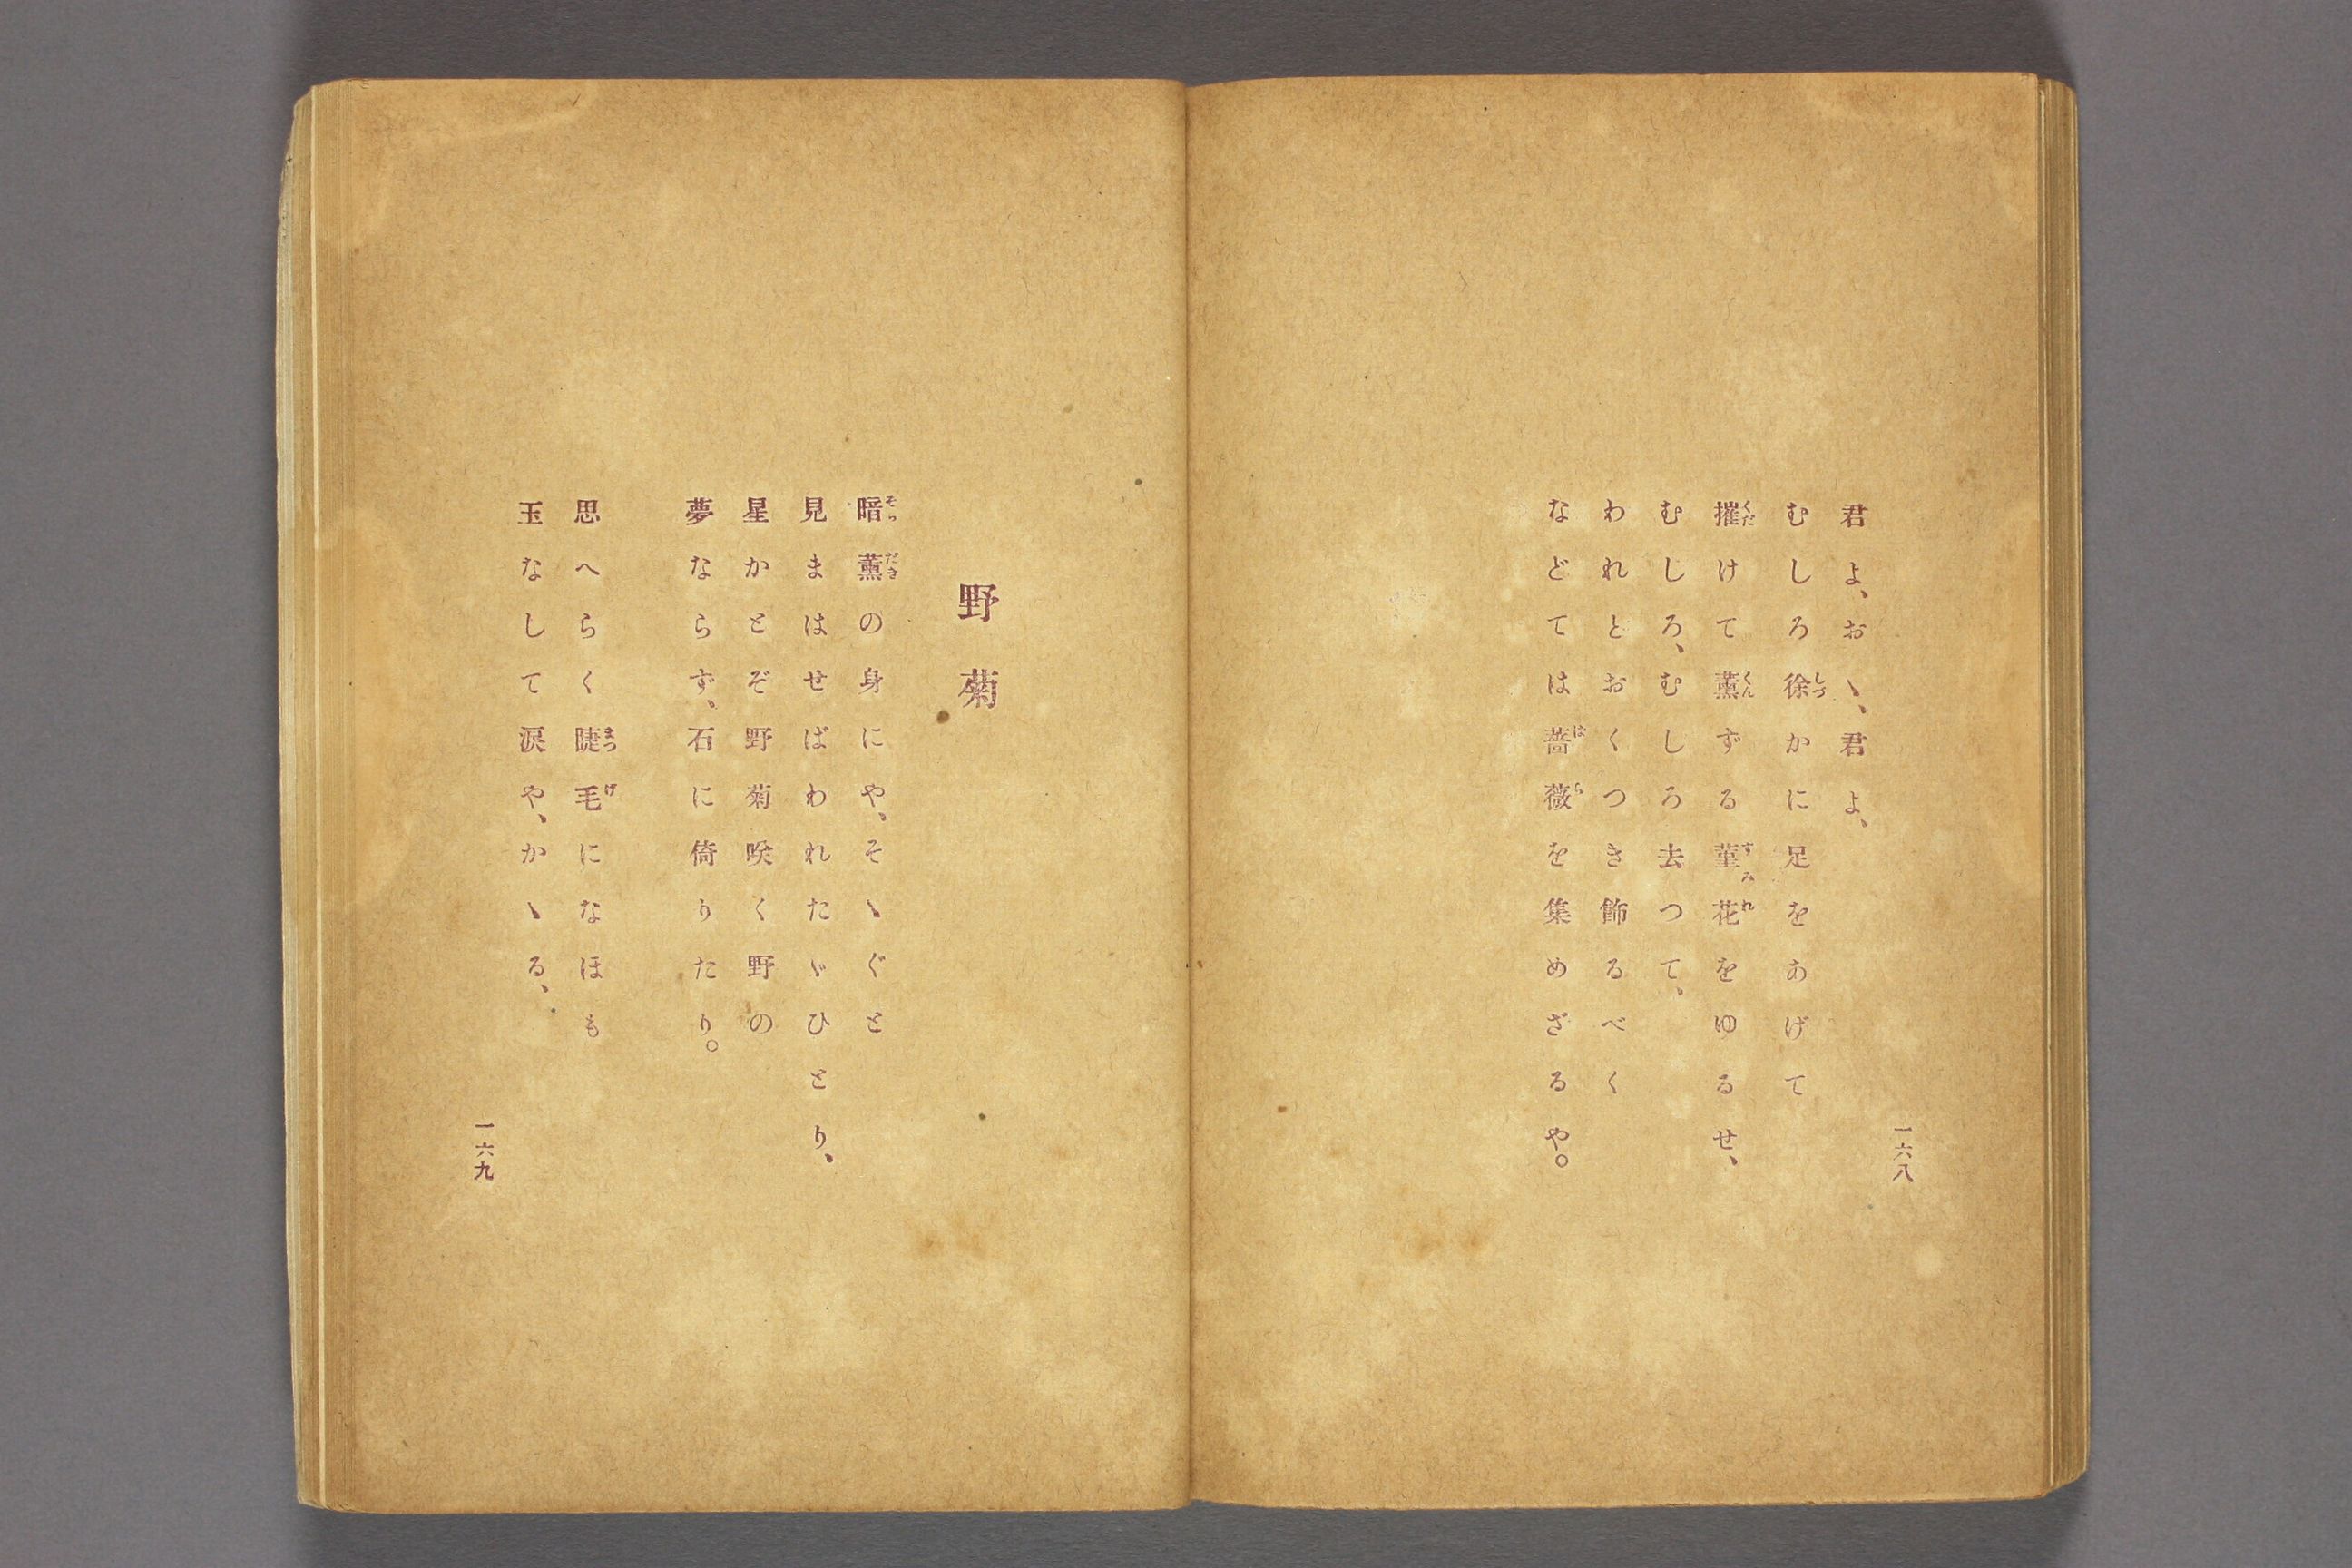 君よ、おゝ、君よ、
むしろ徐かに足をあげて
摧けて薫ずる菫花をゆるせ、
むしろ、むしろ去つて、
われとおくつき飾るべく
などては薔薇を集めざるや。
一六八
野菊
暗薫の身にや、そゝぐと
見まはせばわれたゞひとり、
星かとぞ野菊咲く野の
夢ならず、石に倚りたり。
思へらく睫毛になほも
玉なして涙や、かゝる、
一六九